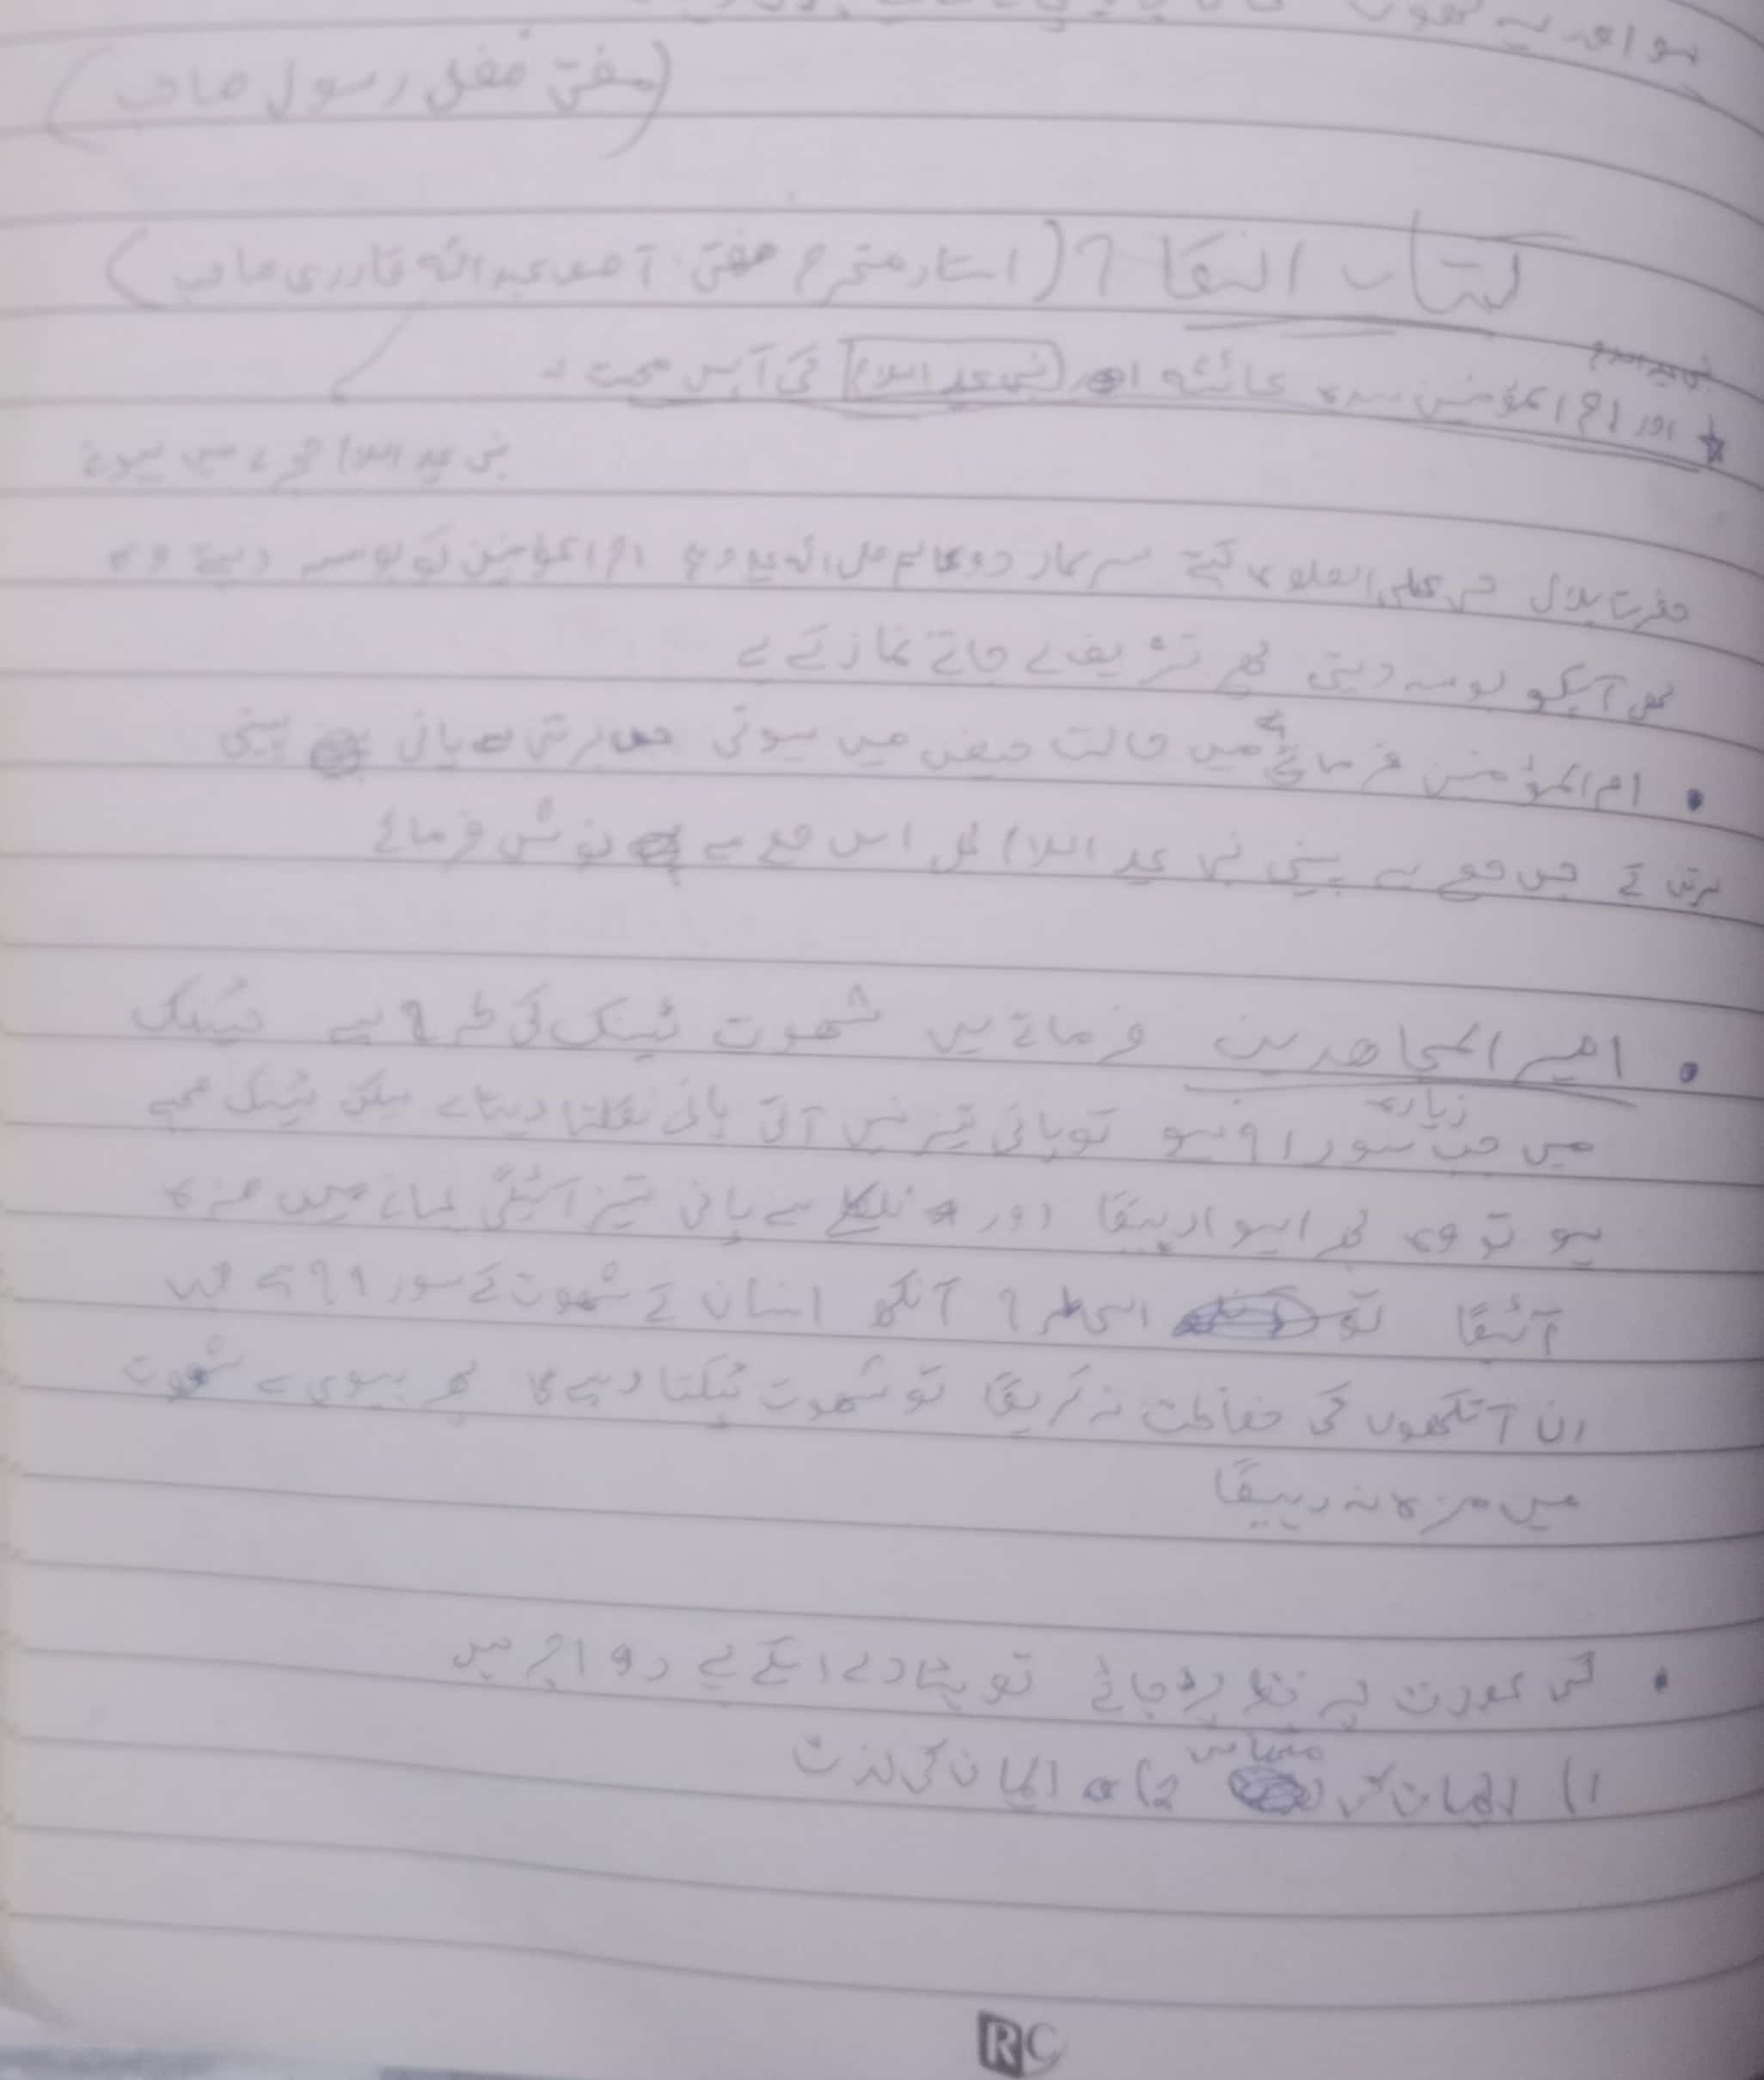 (مفتی فضل رسول صاحب)
کتاب النکاح (استاد محترم مفتی آصف عبد اللہ قادری صاحب)
اور ام المؤمنین سیدہ عائشہ اور نبی علیہ السلام کی آپس محبت
نبی علیہ السلام حجرے میں ہوتے
حضرت بلال حی علی الصلوۃ کہتے سرکار دو عالم صلی اللہ علیہ وسلم ام المؤمنین کو بوسہ دیتے وہ
بھی آپکو بوسہ دیتی پھر تشریف لے جاتے نماز کے لے
ام المؤمنین فرماتی ہے میں حالت حیض میں ہوتی برتن سے پانی پیتی
برتن کے جس حصے سے پیتی نبی علیہ السلام بھی اس حصے سے نوش فرماتے
امیر المجاھدین فرماتے ہیں شھوت ٹینک کی طرح ہے ٹینک
میں جب زیادہ سوراخ ہو تو پانی تیز نہیں آتی پانی نکلتا رہتا ہے لیکن ٹینک صحیح
ہو تو وہ بھرا ہوا رہیگا اور نلکے سے پانی تیز آئیگی نہانے میں مزہ
آئیگا تو اسی طرح آنکھ انسان کے شھوت کے سوراخ ہے جب
ان آنکھوں کی حفاظت نہ کریگا تو شھوت ٹپکتا رہے گا پھر بیوی سے شھوت
میں مزہ نہ رہیگا
کسی عورت پر نظر پڑ جائے تو ہٹا دے اسکے لے دو اجر ہیں
1) ایمان کی مٹھاس 2) ایمان کی لذت
RC